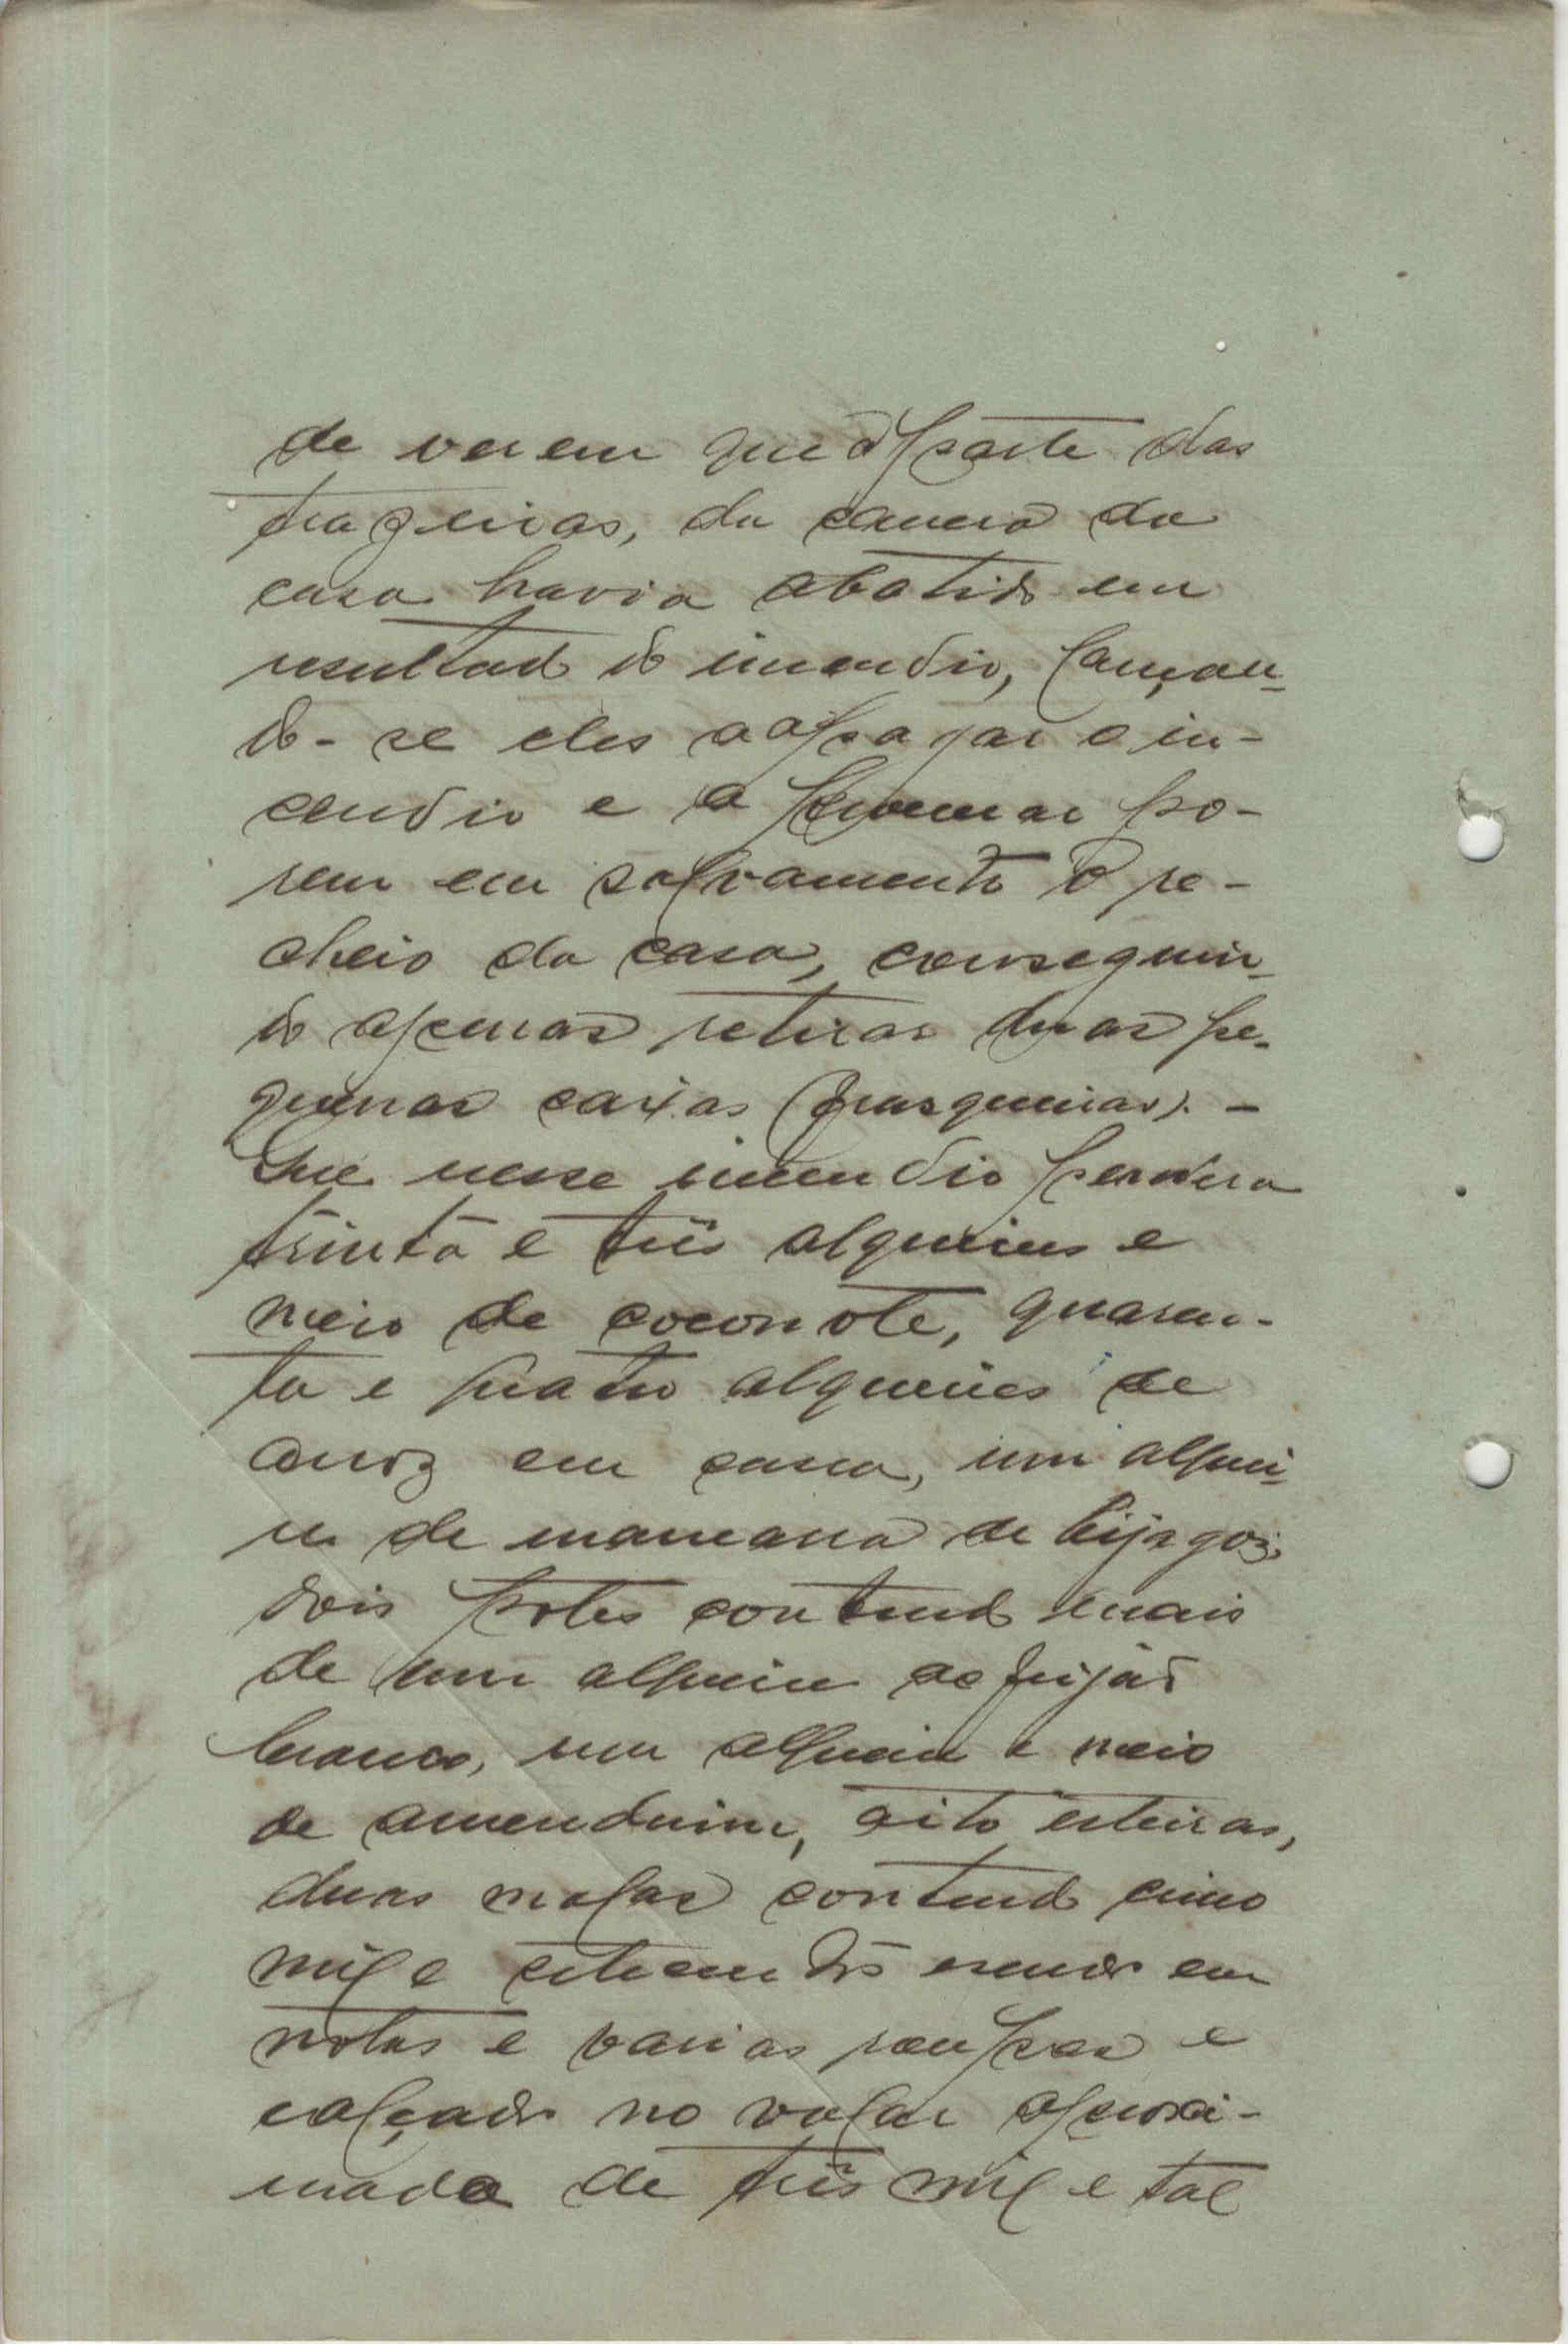 de verem que a parte das
traseiras, da camara da
casa havia abatido em
resultado do incendio, lançan-
do-se eles a apagar o in-
cendio e a procurar po-
rem em salvamento o re-
cheio da casa, conseguin-
do apenas retirar duas pe-
quenas caixas (frasqueiras). -
Que nesse incendio perdera
trinta e três alqueires e
meio de coconote, quaren-
ta e quatro alqueires de
arroz em casca, um alquei-
re de mancarra de bijagoz,
dois potes contendo mais
de um alqueire de feijão
branco, um alqueire e meio
de amenduim, oito esteiras,
duas malas contendo cinco
mil e setecentos escudos em
notas e varias roupas e
calçado no valor aproxi-
mado de três mil e tal